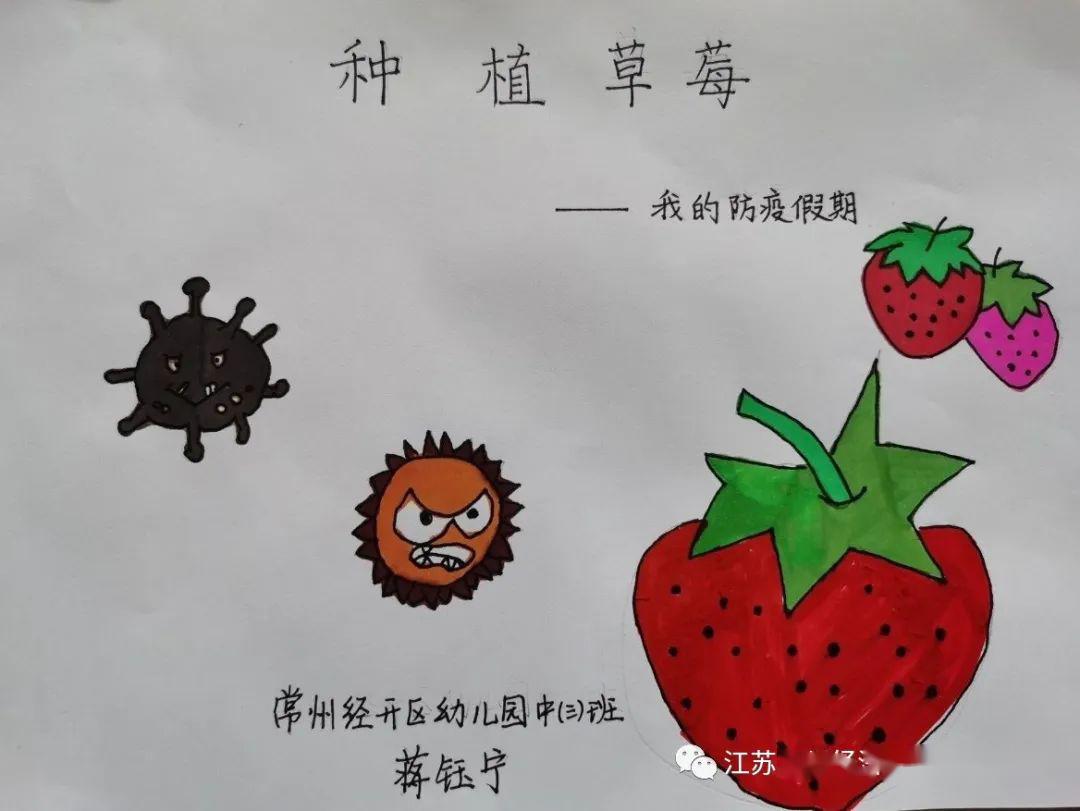 种植草莓
—— 我的防疫假期
常州经开区幼儿园中(三)班
蒋钰宁
江苏